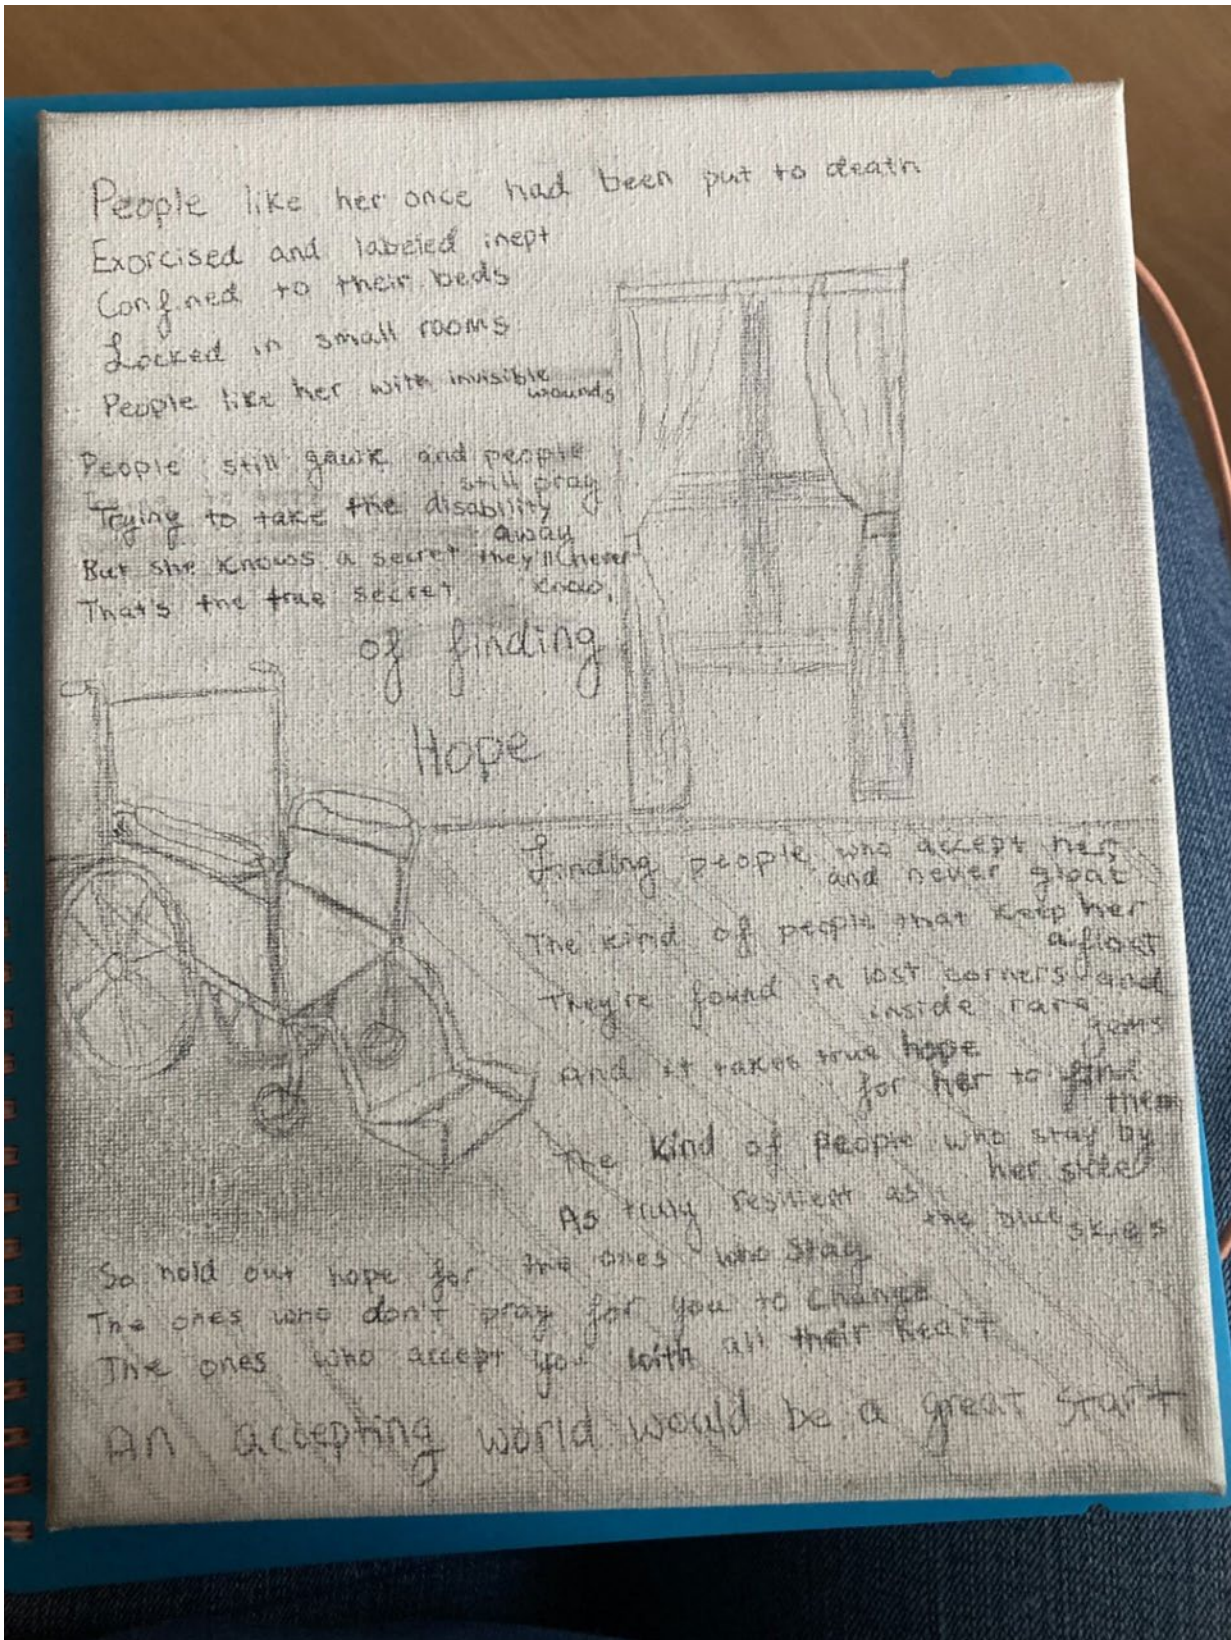 People like her once had been put to death
Exorcised and labeled inept
Confined to their beds
Locked in small rooms
People like her with invisible
wounds
People still gawk and people
still pray
Trying to take the disability
away
But she knows a secret they'll never
know,
That's the true secret
of finding
Hope
Finding people who accept her,
and never gloat
The kind of people that keep her
afloat
They're found in lost corners and
inside rare
gems
And it takes true hope
for her to find
them
The kind of people who stay by
her side
As truly resilient as
the blue skies
So hold out hope for the ones who stay
The ones who don't pray for you to change
The ones who accept you with all their heart
An accepting world would be a great start